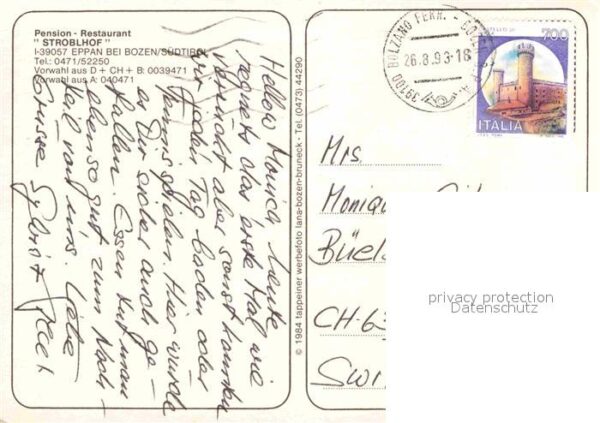 Pension - Restaurant
"STROBLHOF"
I-39057 EPPAN BEI BOZEN/SÜDTIROL
Tel.: 0471/52250
Vorwahl aus D + CH + B: 0039471
Vorwahl aus A: 040471
Hellow Monica, heute
regnets das erste Mal wie
verrückt aber sonst konnten
wir jeden Tag baden oder
Tennis spielen. Hier würde
es Dir sicher auch ge-
fallen. Essen tut man
ebenso gut, zum Nach-
teil von uns. Liebe
Grüsse Sylvia
© 1984 tappeiner werbefoto lana-bozen-bruneck - Tel. (0473) 44290
39100 BOLZANO FERR. -
26.8.93-18
700
ITALIA
Mrs.
Büel
CH-63
Swi
privacy protection
Datenschutz